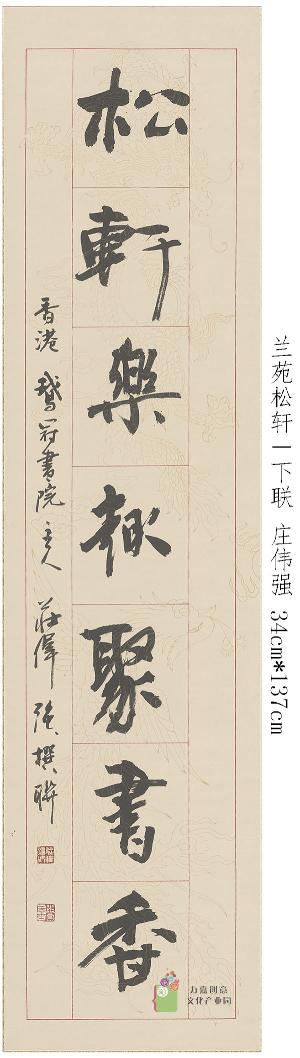 松軒樂趣聚書香
香港 鵝冠書院 主人 莊偉強 撰聯
兰苑松轩一下联 庄伟强 34cm*137cm
力嘉创意
文化产业园